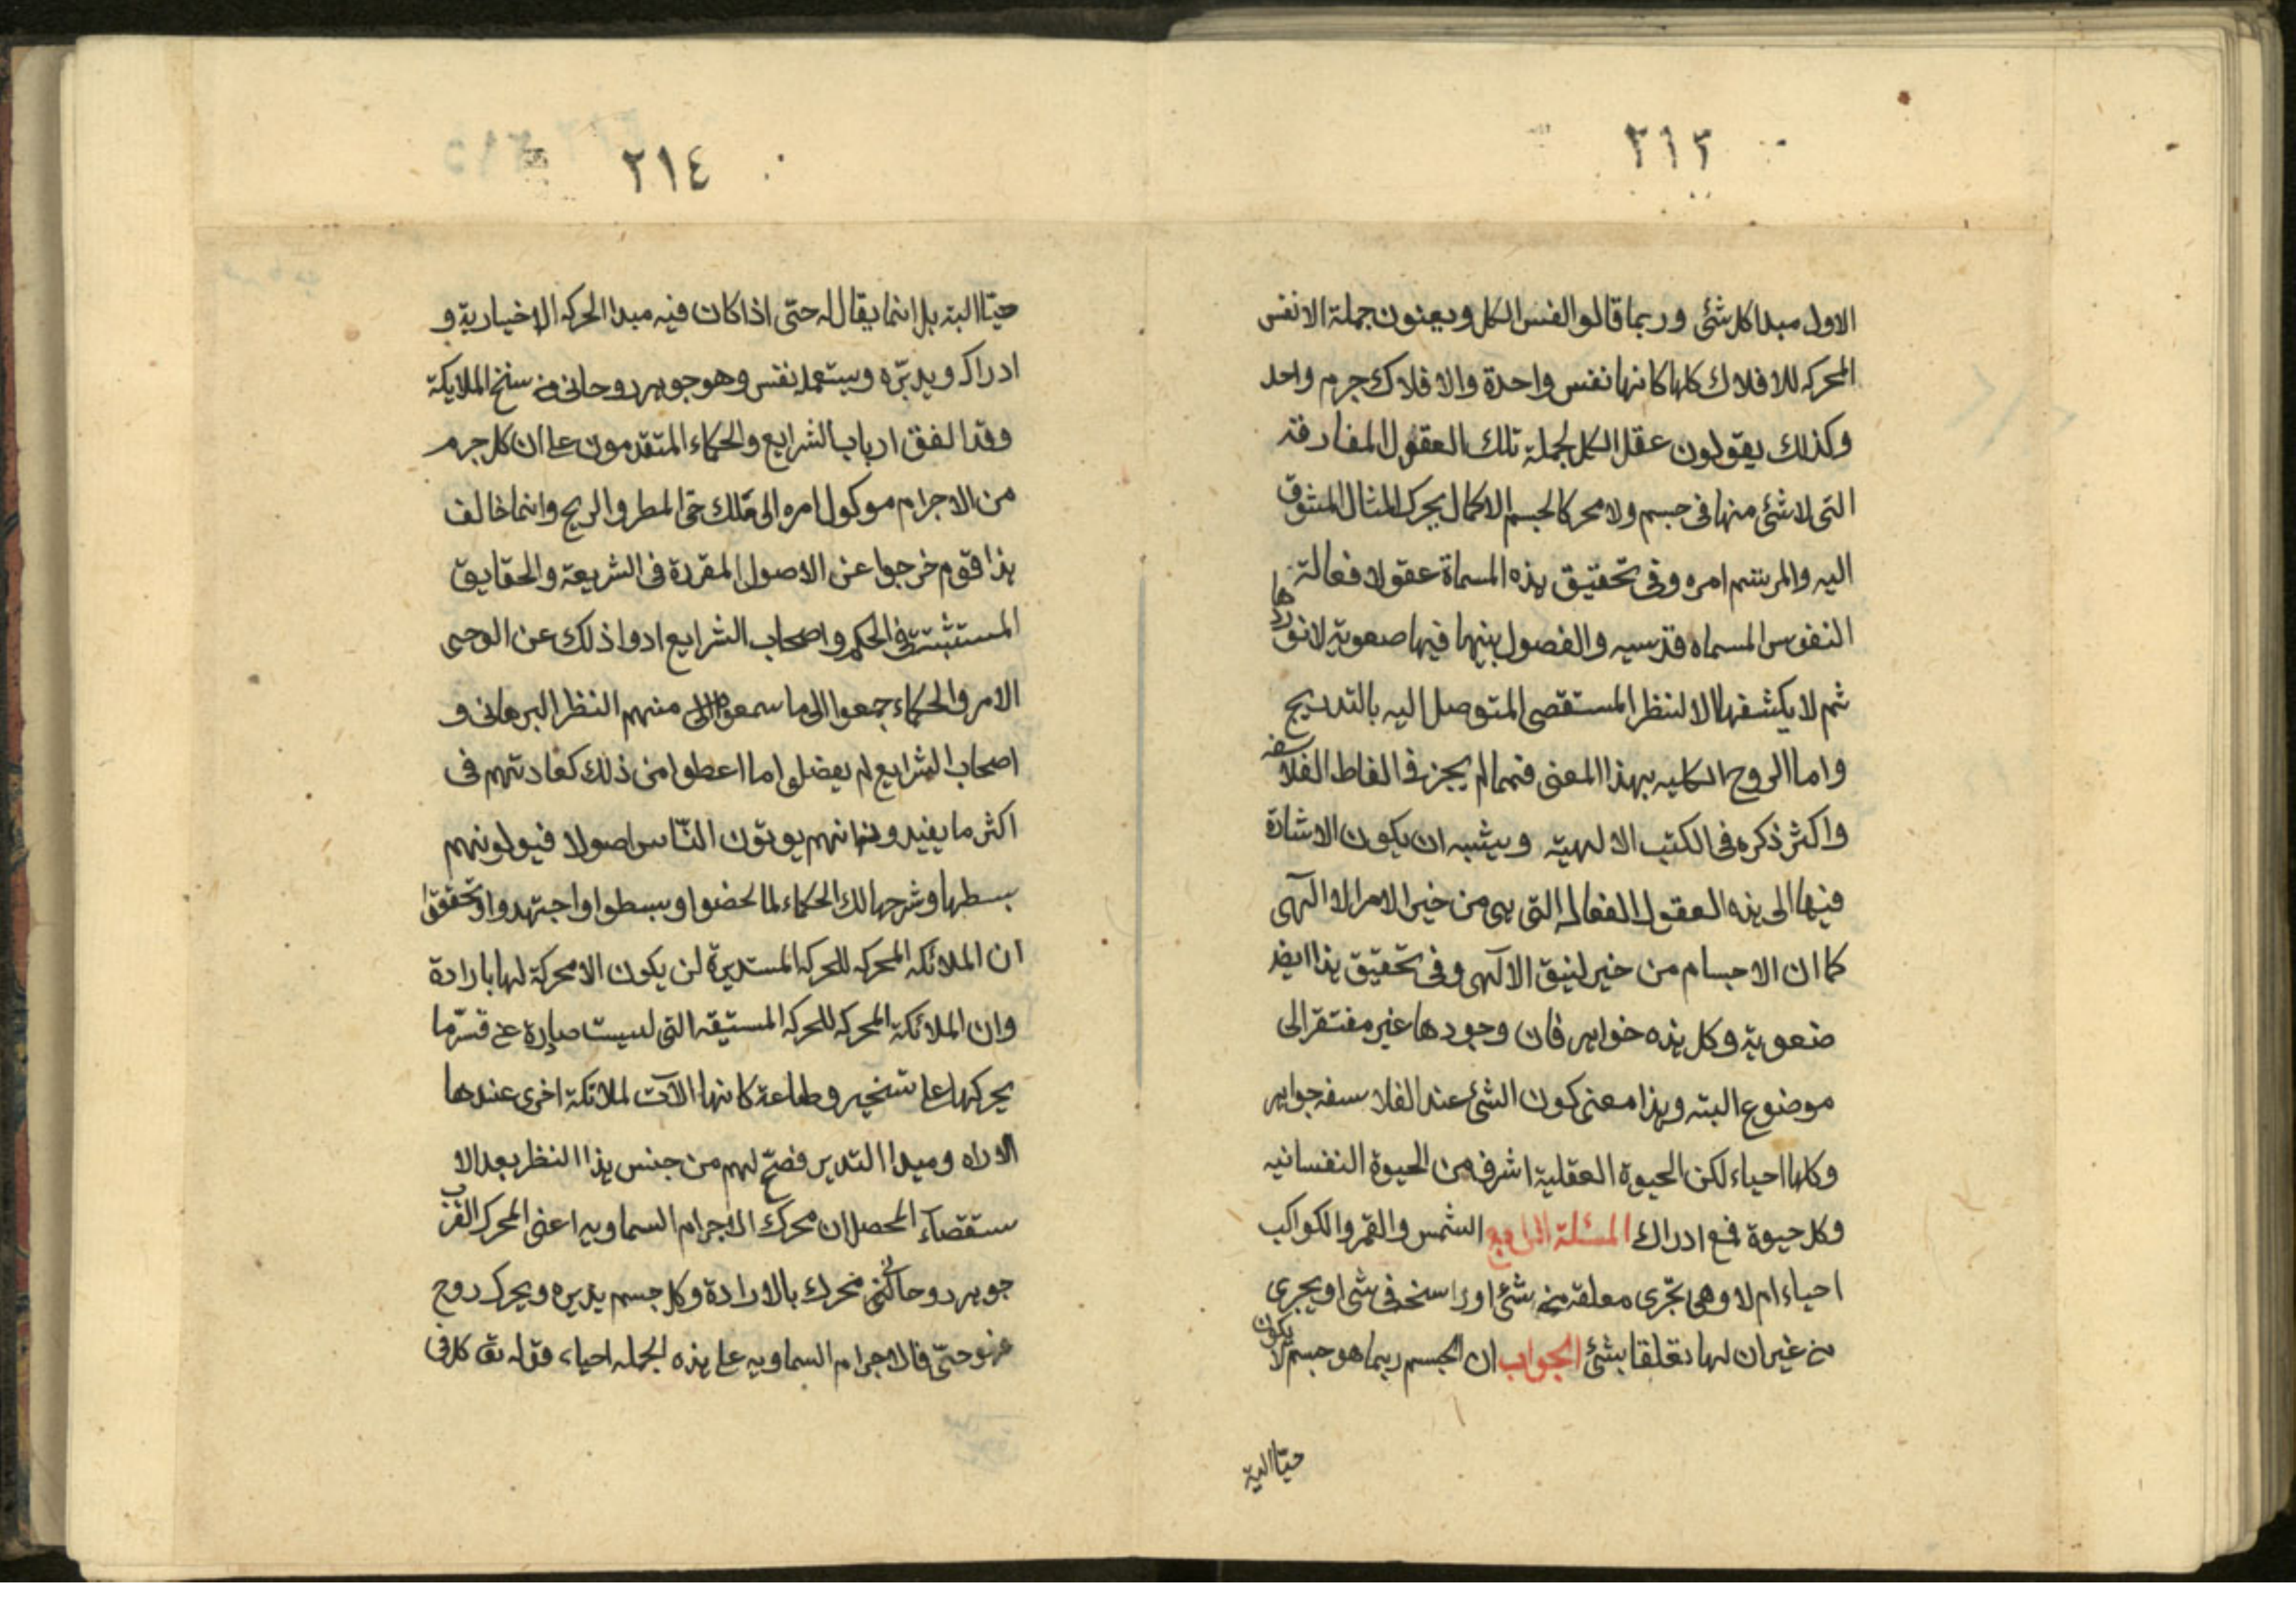 ٢١٣
الاول مبدا كل شئ وربما قالوا لنفس الكل ويعنون جملة الانفس
المحركه للافلاك كلها كانها نفس واحدة والافلاك جرم واحد
وكذلك يقولون عقل الكل لجملة تلك العقول المفارقه
التى لا شئ منها فى جسم ولا محركا لجسم الا كما يحرك المثال المشوق
اليه والمرتسم امره وفى تحقيق هذه المسماة عقولا فعالة
النفوس المسماه قدسيه والفصول بينهما فيها صعوبة لا نوردها
ثم لا يكشفها الا لنظر المستقصى المتوصل اليه بالتدريج
واما الروح الكليه بهذا المعنى فمما لم يجز فى الفاظ الفلاسفه
واكثر ذكره فى الكتب الالهية ويشبه ان يكون الاشارة
فيها الى هذه العقول الفعاله التى هى من خير الامر الالهى
كما ان الاجسام من خير الآلهى وفى تحقيق هذا ايضا
ضعوبة وكل هذه خواهر فان وجودها غير مفتقر الى
موضوع البته وهذا معنى كون الشئ عند الفلاسفه جواهر
وكلها احياء لكن الحيوة العقلية اشرف من الحيوة النفسانيه
وكل حيوة فمع ادراك المسئلة الرابع الشمس والقمر والكواكب
احياء ام لا وهى تجرى معلقة من شئ او راسخ فى شى او يجرى
من غير ان لها تعلقا بشئ الجواب ان الجسم ربما هو جسم لا يكون
حيّا البتة
٢١٤
حيّا البته بل انما يقال له حتى اذا كان فيه مبدا الحركه الاخيارية و
ادراك ويدبّره ويستعمله نفس وهو جوهر روحانى من سنخ الملايكة
وقد اتفق ارباب الشرايع والحكماء المتقدمون على ان كل جرم
من الاجرام موكول امره الى ملك حتى المطر والريح وانما خالف
هذا قوم خرجوا عن الاصول المقررة فى الشريعة والحقايق
المستثبتة فى الحكم واصحاب الشرايع ادوا ذلك عن الوحى
الامر والحكماء جمعوا الى ما سمعوا منهم النظر البرهانى و
اصحاب الشرايع لم يفصلوا ما اعطوا من ذلك كعادتهم فى
اكثر ما يفيدونه انهم يوتون النّاس اصولا فيولونهم
بسطها وشرحها لك الحكماء لما لحضوا وبسطوا واجتهدوا وتحققوا
ان الملائكه المحركه للحركه المستديرة لن يكون الا محركة لها بارادة
وان الملائكة المحركه للحركه المستيقه التى ليست صادرة عن قسر ما
يحركها على تسخير وطاعة كانها الآت لملائكة اخرى عندها
الاراه ومبدا التدبير فصحّ لهم من جنس هذا النظر بعد الا
ستقصآء المحصل ان محرك الاجرام السماويه اعنى المحرك القرب
جوهر روحانى محرك بالارادة وكل جسم يدبره ويحرك روح
فهو حىّ فالاجرام السماويه على هذه الجمله احياء قوله تق كل فى